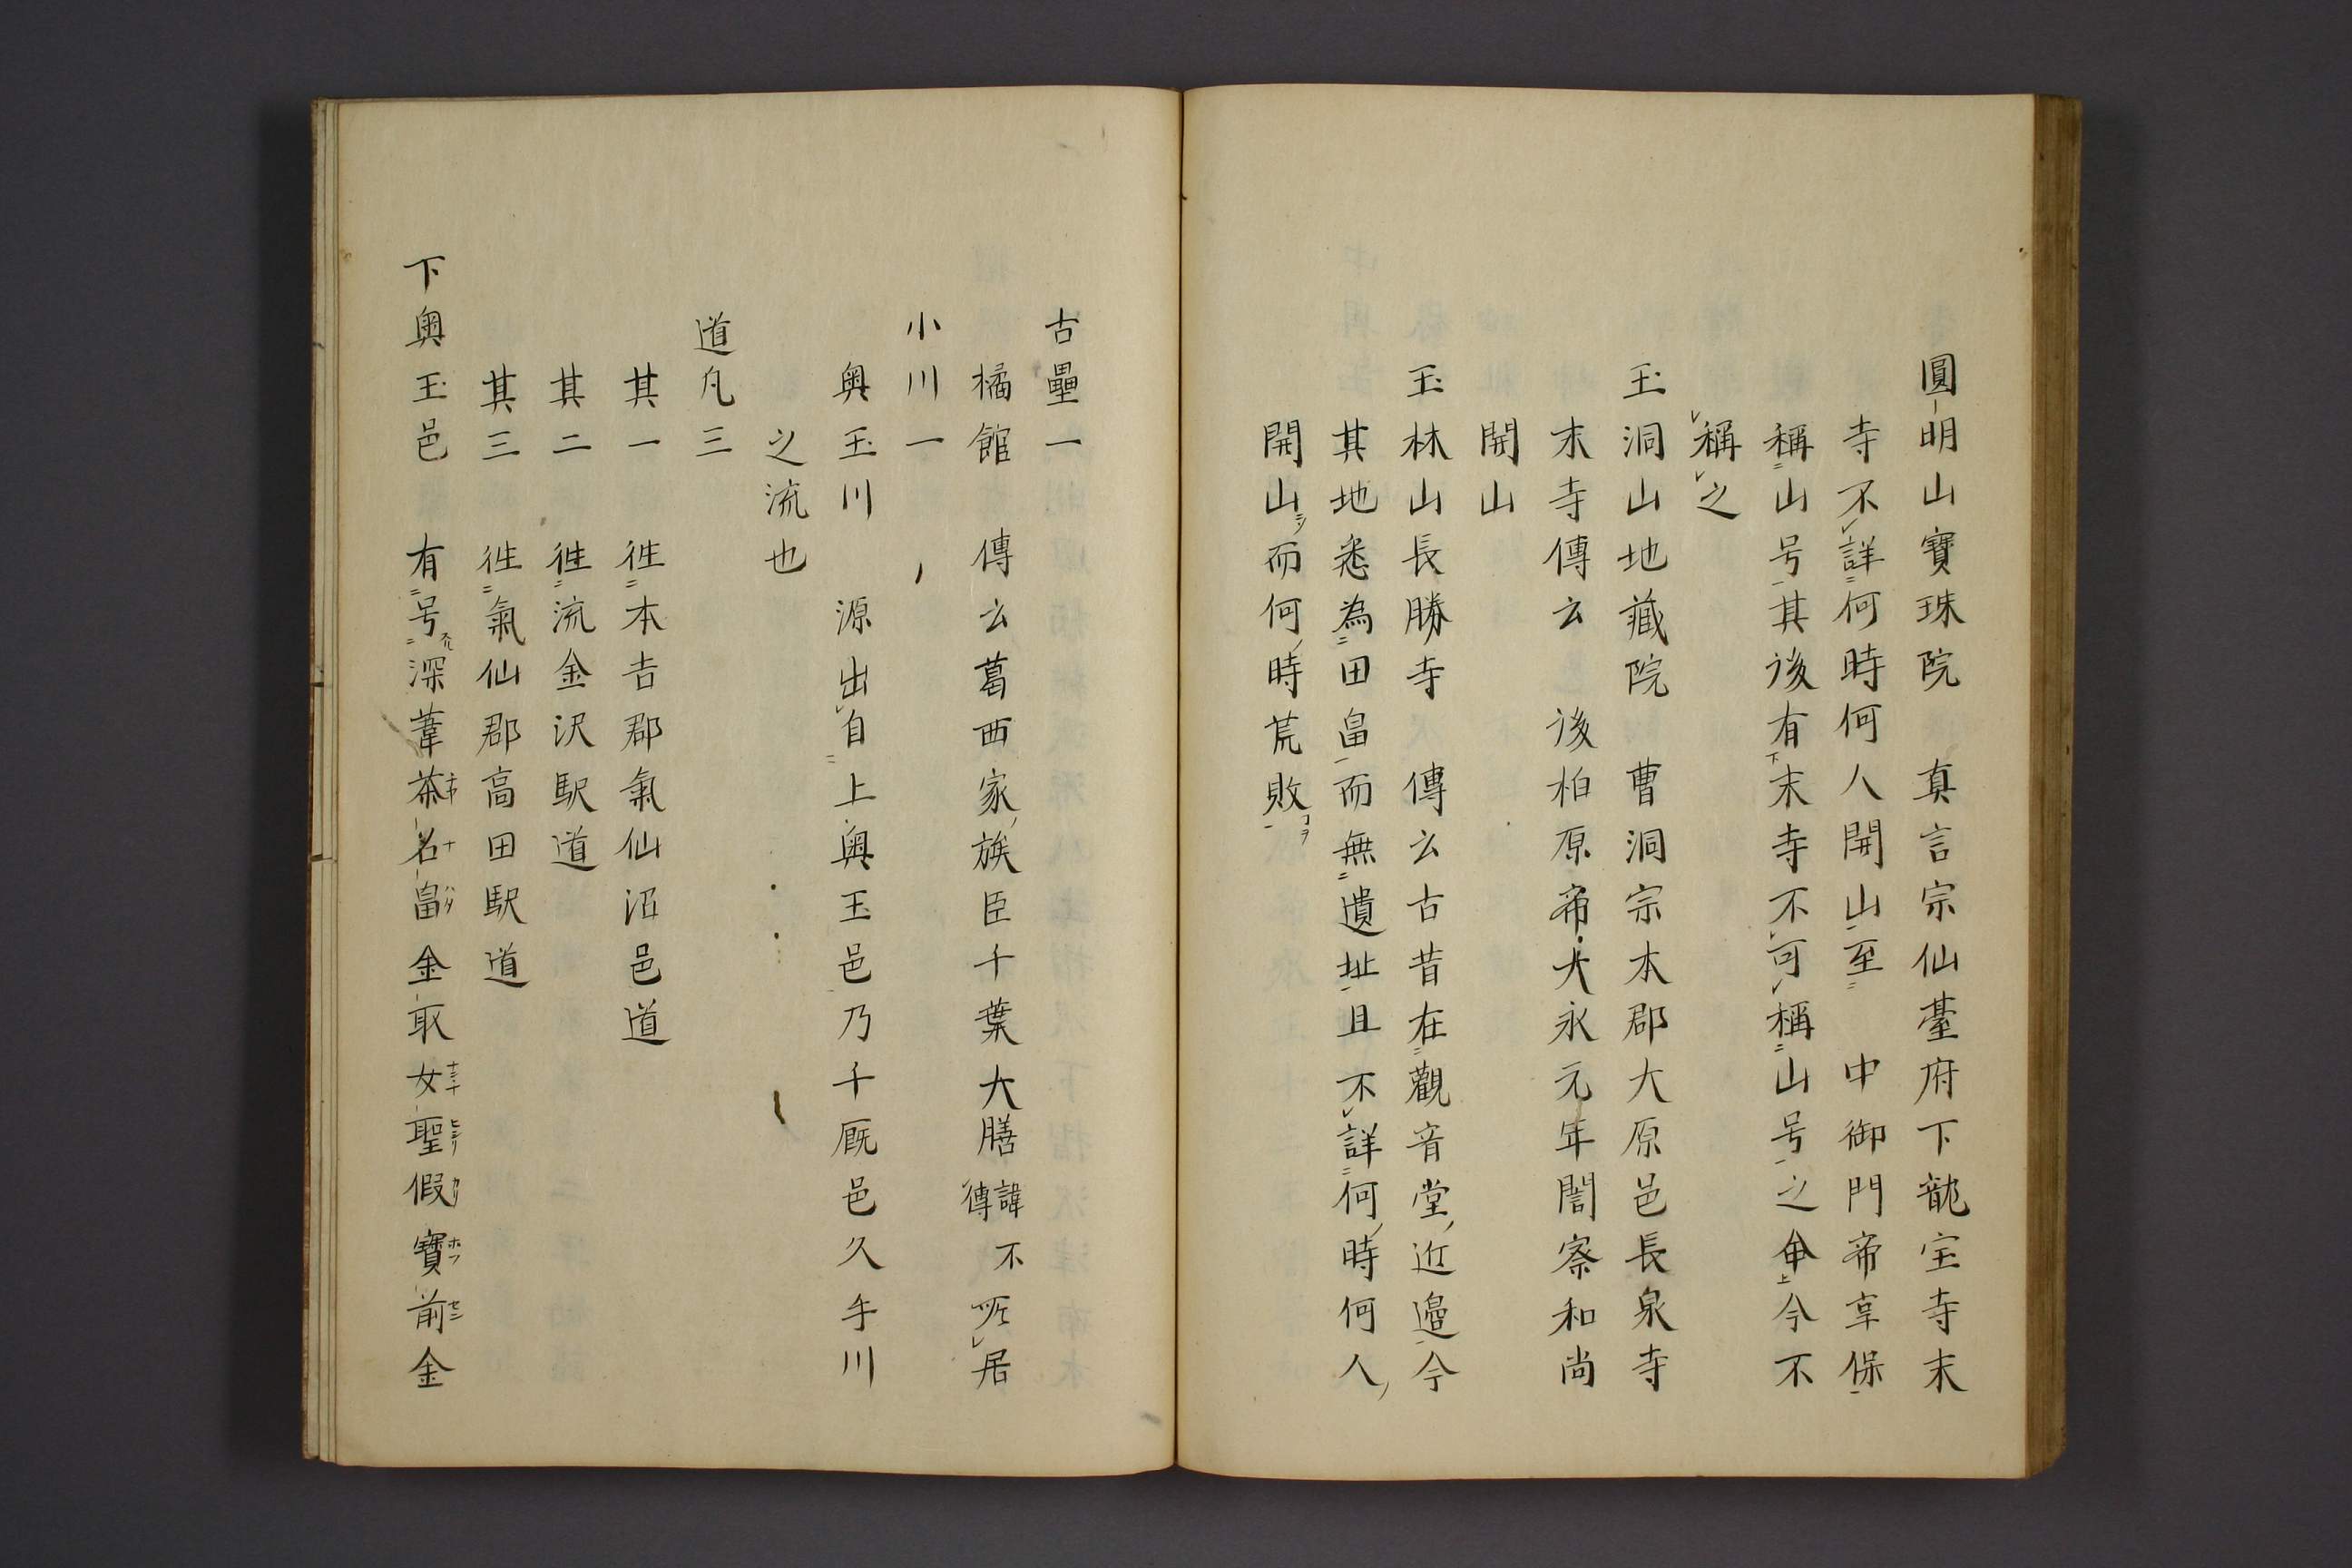 圓明山寶珠院 真言宗仙臺府下龍宝寺末
寺不詳何時何人開山至 中御門帝享保
稱山号其後有末寺不可稱山号之命今不
稱之
玉洞山地藏院 曹洞宗本郡大原邑長泉寺
末寺傳云 後柏原帝大永元年誾察和尚
開山
玉林山長勝寺 傳云古昔在觀音堂近邉今
其地悉為田畠而無遺址且不詳何時何人
開山而何時荒敗
古壘一
橘館 傳云葛西家族臣千葉大膳諱不傳所居
小川一
奥玉川 源出自上奥玉邑乃千厩邑久手川
之流也
道凡三
其一 徃本吉郡氣仙沼邑道
其二 徃流金沢駅道
其三 徃氣仙郡高田駅道
下奥玉邑 有号深葦茶名畠金取女聖假寶前金